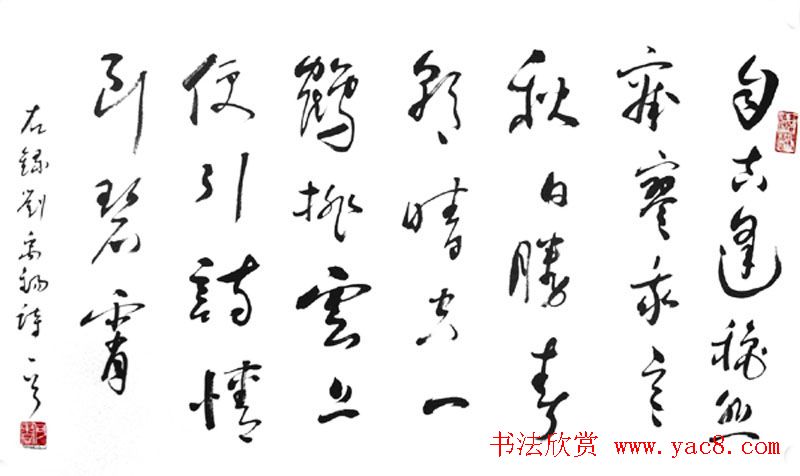 自古逢秋悲
寂寥我言
秋日勝春
朝晴空一
鶴排雲上
便引詩情
到碧霄
右錄劉禹錫詩
书法欣赏 www.yac8.com